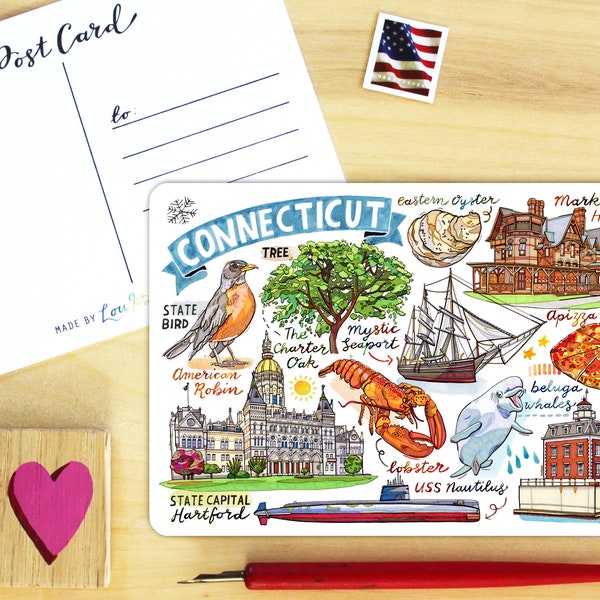 Post Card
to:
MADE BY Lou
CONNECTICUT
eastern Oyster
Mark
H
TREE
STATE
BIRD
The
Charter
Oak
Mystic
Seaport
Apizza
American
Robin
beluga
whales
lobster
USS Nautilus
STATE CAPITAL
Hartford